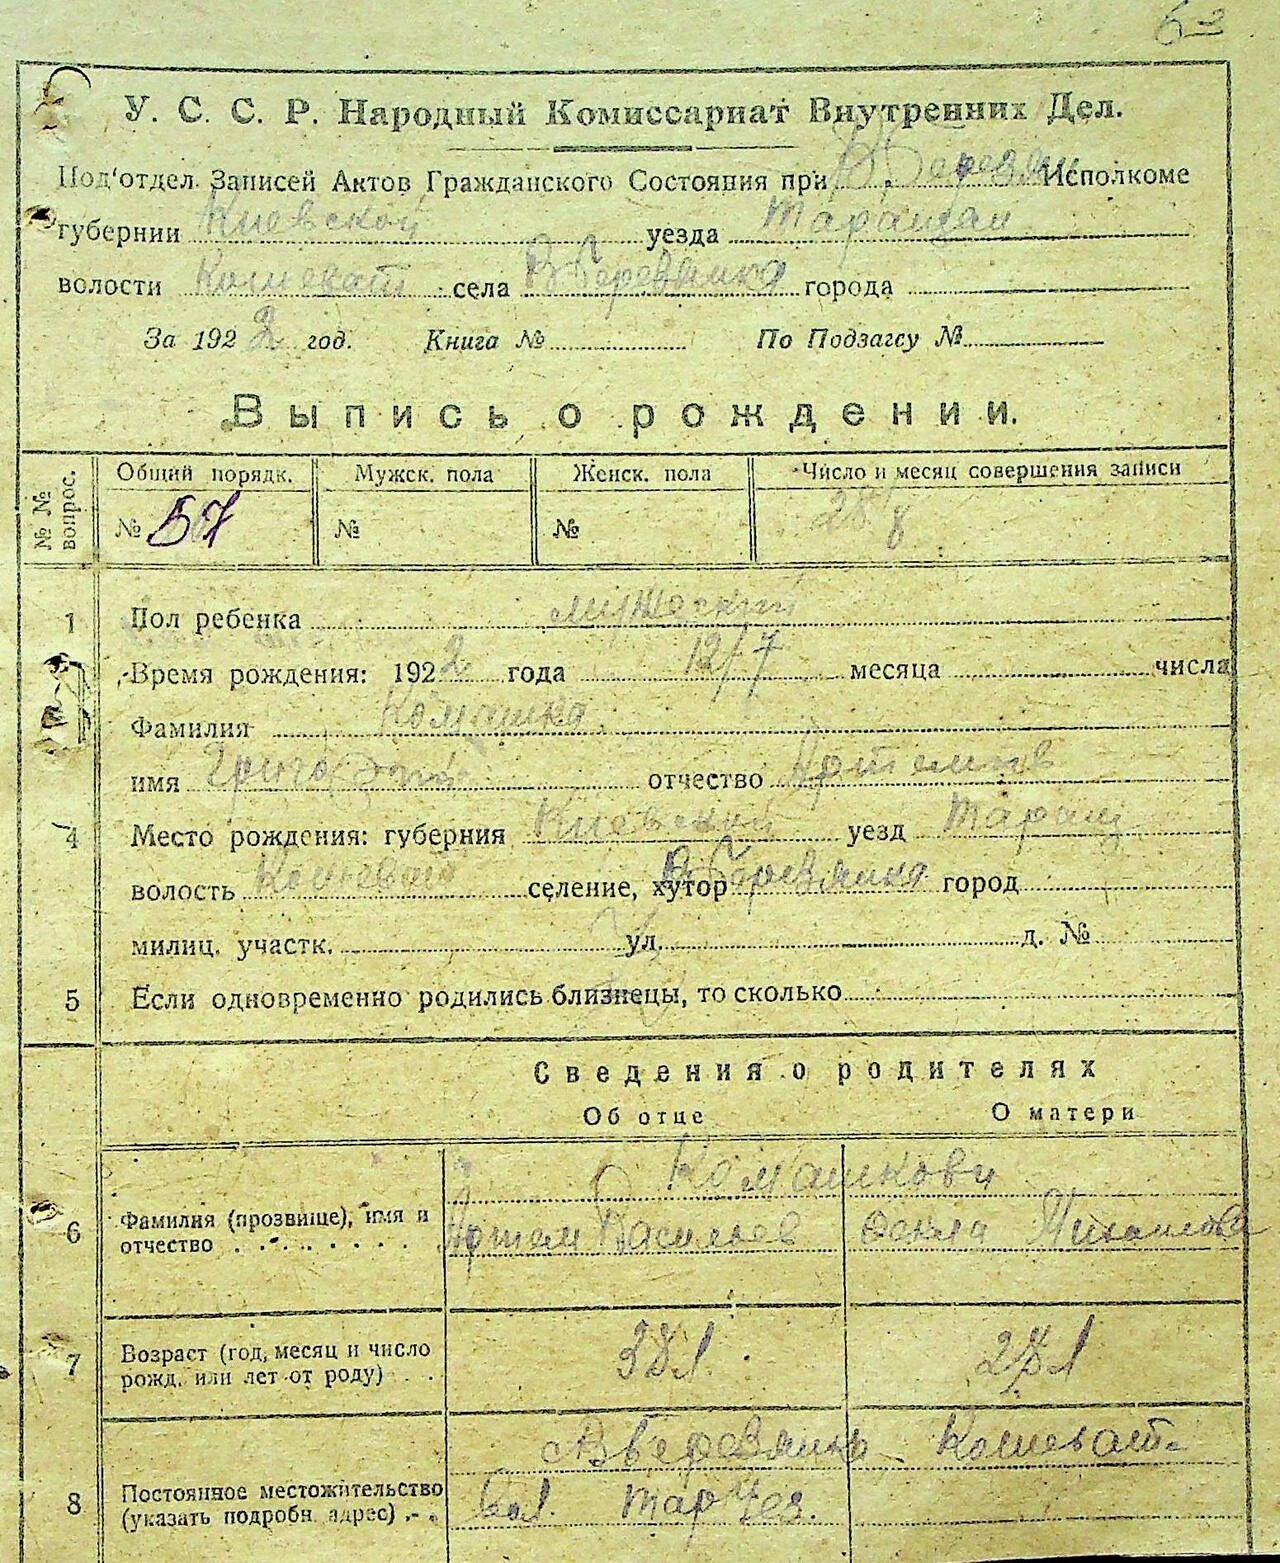 У. С. С. Р. Народный Комиссариат Внутренних Дел.
Под'отдел Записей Актов Гражданского Состояния при В. Березян Исполкоме
губернии Киевской уезда Таращан
волости Кошеват села В Березянка города
За 1922 год. Книга № По Подзагсу №
Выпись о рождении.
№№ вопрос. Общий порядк. Мужск. пола Женск. пола Число и месяц совершения записи
№ 57 № № 28/8
1 Пол ребенка мужеский
Время рождения: 1922 года 12/7 месяца числа
Фамилия Комашко
имя отчество Артемов
4 Место рождения: губерния Киевской уезд Таращ
волость Кошеват селение, хутор В Березянка город
милиц. участк. ул. д. №
5 Если одновременно родились близнецы, то сколько
Сведения о родителях
Об отце О матери
Комашкови
6 Фамилия (прозвище), имя и отчество Артем Васильев Фекла Михайлова
7 Возраст (год, месяц и число рожд. или лет от роду) 38 л. 28 л
В Березянка Кошеват-
8 Постоянное местожительство (указать подробн адрес) вол. Тар Уез.